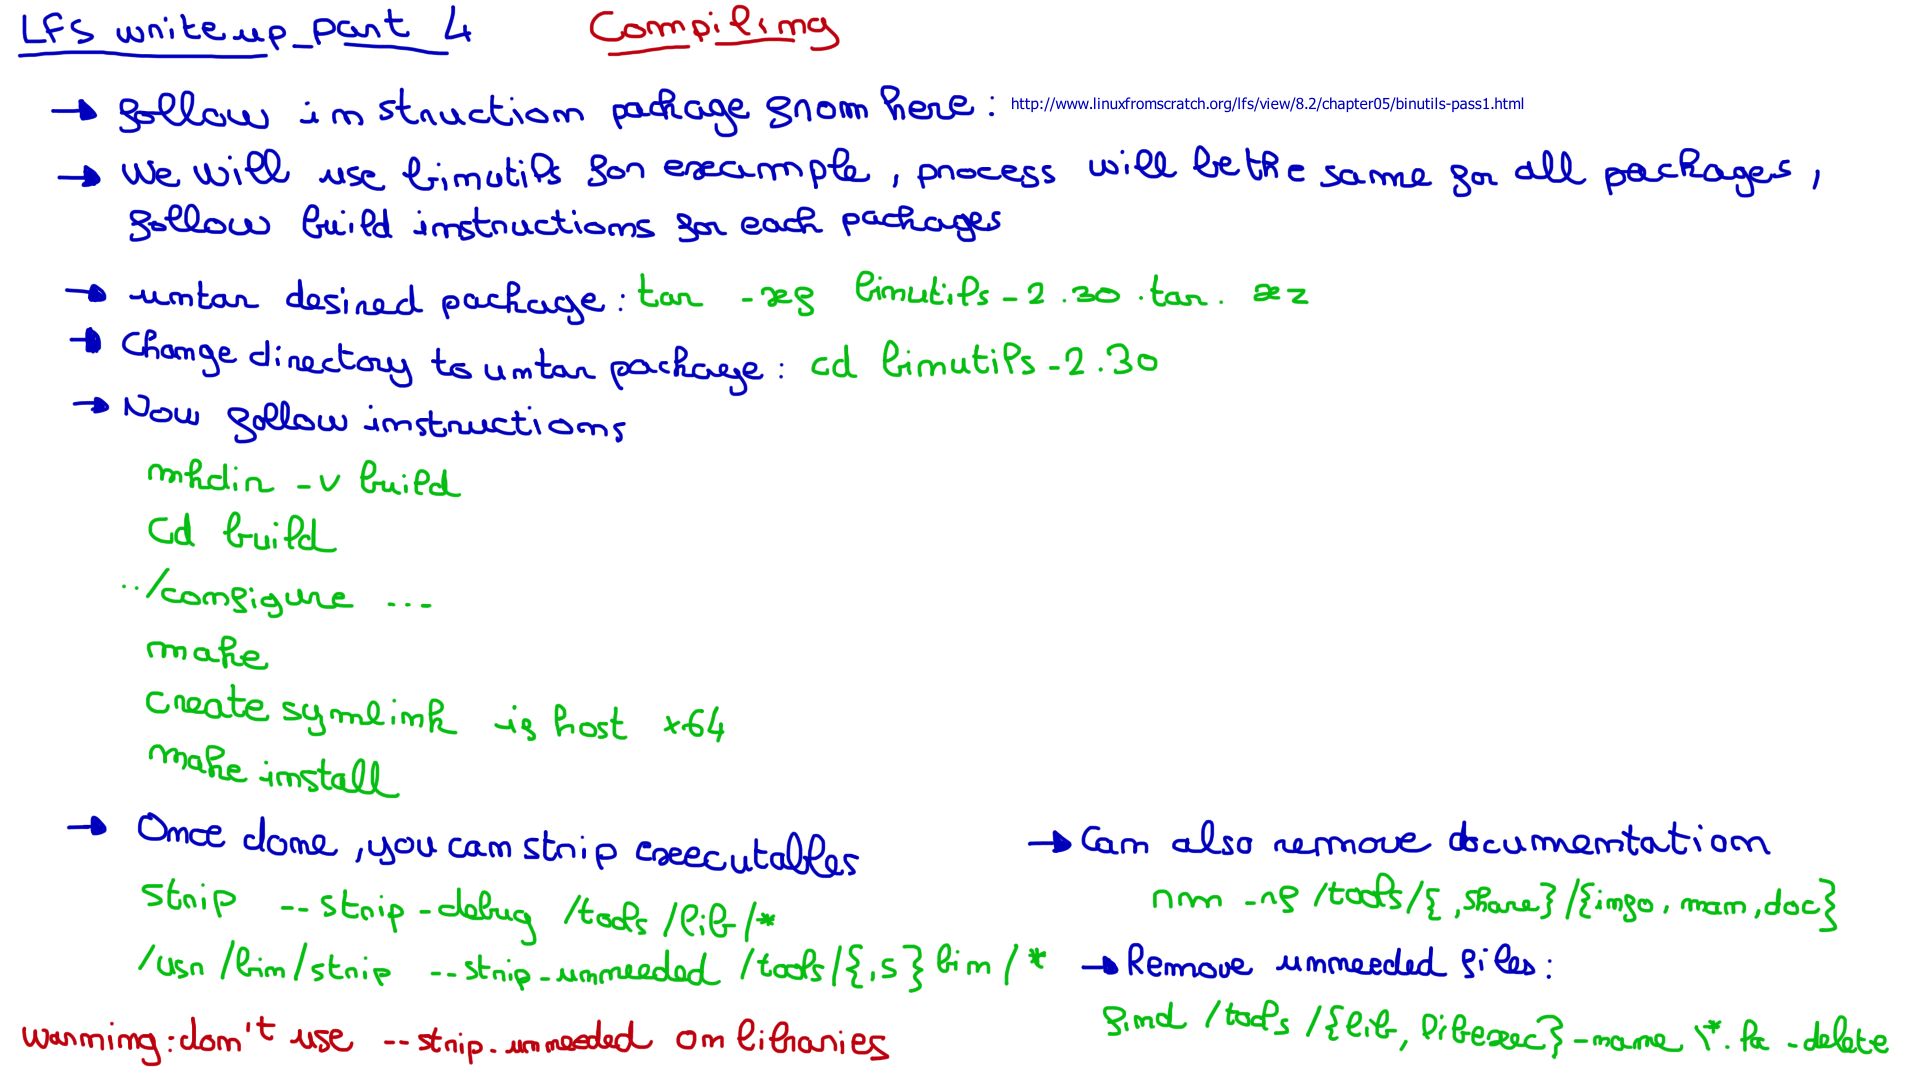 LFS writeup_part 4 Compiling
→ follow instruction package from here : http://www.linuxfromscratch.org/lfs/view/8.2/chapter05/binutils-pass1.html
→ We will use binutils for example, process will be the same for all packages,
follow build instructions for each packages
→ untar desired package : tar -xf binutils-2.30.tar.xz
→ Change directory to untar package : cd binutils-2.30
→ Now follow instructions
mkdir -v build
cd build
../configure ...
make
create symlink if host x64
make install
→ Once done, you can strip executables
strip --strip-debug /tools/lib/*
/usr/bin/strip --strip-unneeded /tools/{,s}bin/*
warning: don't use --strip-unneeded on libraries
→ Can also remove documentation
rm -rf /tools/{,share}/{info,man,doc}
→ Remove unneeded files :
find /tools/{lib,libexec} -name \*.la -delete